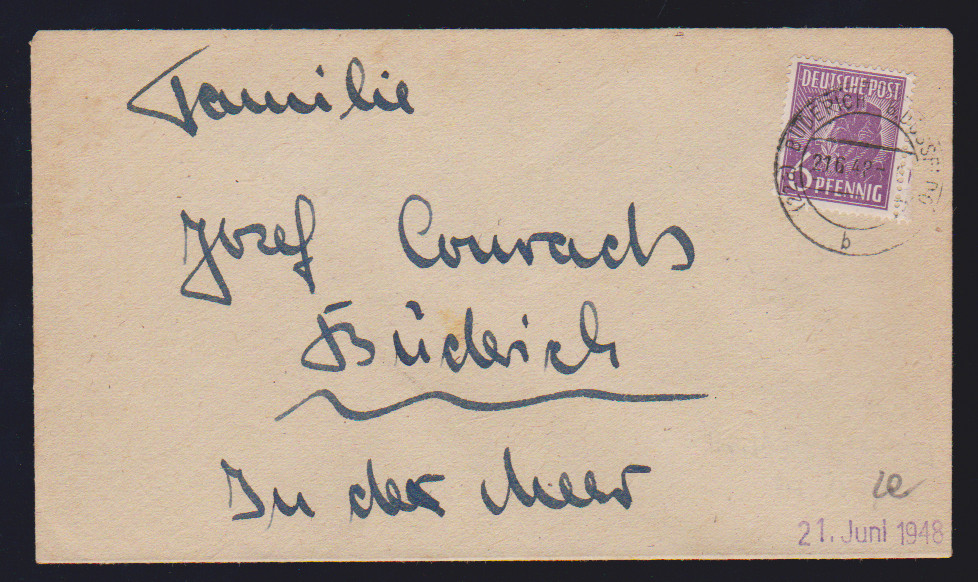 Familie
DEUTSCHE POST
6 PFENNIG
BÜDERICH
21.6.48
b
Josef Conrads
Büderich
In der Meer
21. Juni 1948